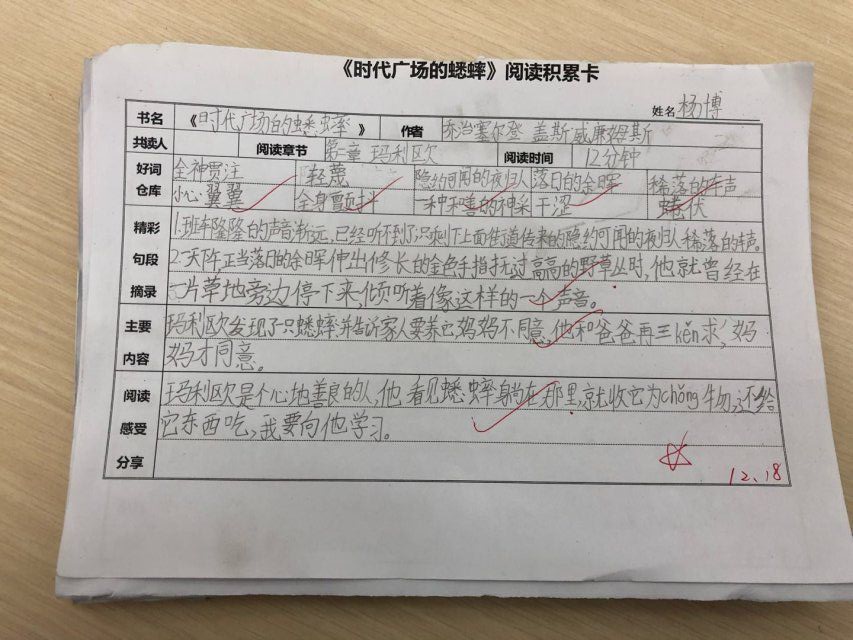 《时代广场的蟋蟀》阅读积累卡
姓名 杨博
书名 《时代广场的蟋蟀》 作者 乔治塞尔登 盖斯威廉姆斯
共读人 阅读章节 第一章 玛利欧 阅读时间 12分钟
好词 全神贯注 轻蔑 隐约可闻的夜归人 落日的余晖 稀落的车声
仓库 小心翼翼 全身颤抖 一种和善的神采 干涩 蜷伏
精彩 1.班车隆隆的声音渐远,已经听不到了只剩下上面街道传来的隐约可闻的夜归人稀落的车声。
句段 2.一天阵,正当落日的余晖伸出修长的金色手指抚过高高的野草丛时,他就曾经在
摘录 一片草地旁边停下来,倾听着像这样的一个声音。
主要 玛利欧发现了只蟋蟀,并告诉家人要养它妈妈不同意,他和爸爸再三kěn求,妈
内容 妈才同意。
阅读 玛利欧是个心地善良的人,他看见蟋蟀身躺在那里,就收它为chǒng物,还给
感受 它东西吃,我要向他学习。
分享
12.18